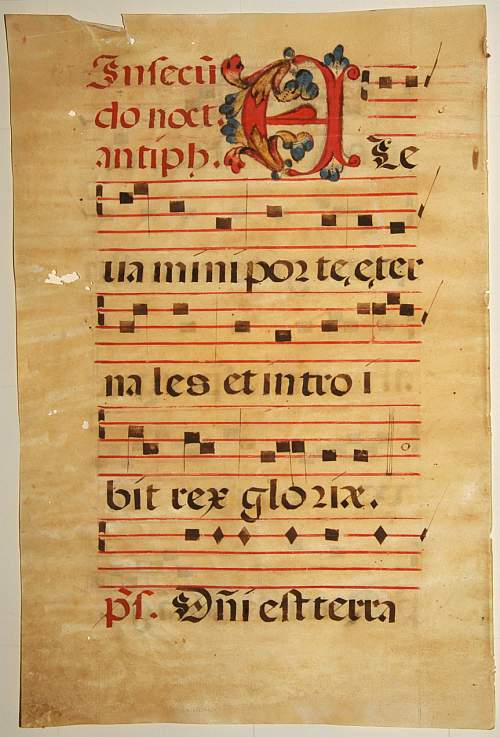 In secũ
do noct.
antiph. E Le
ua mini por tę ęter
na les et intro i
bit rex gloriæ.
p̃s. Dñi est terra